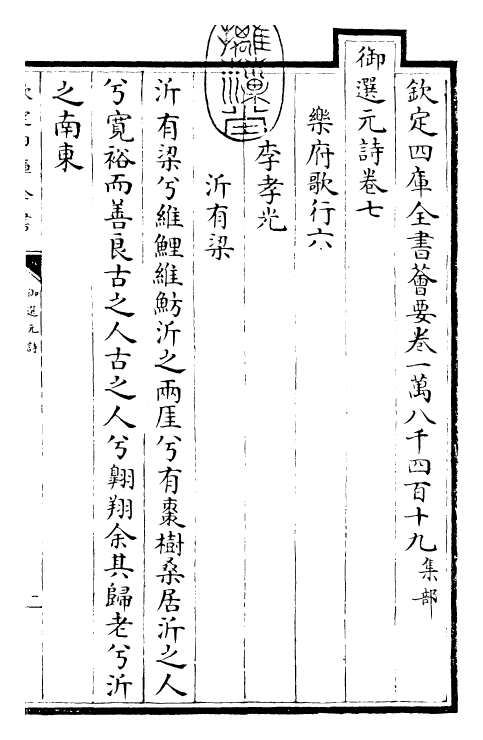 欽定四庫全書薈要卷一萬八千四百十九集部
御選元詩卷七
樂府歌行六
李孝光
沂有梁
沂有梁兮維鯉維魴沂之兩厓兮有棗樹桑居沂之人
兮寛裕而善良古之人古之人兮翺翔余其歸老兮沂
之南東
御選元詩